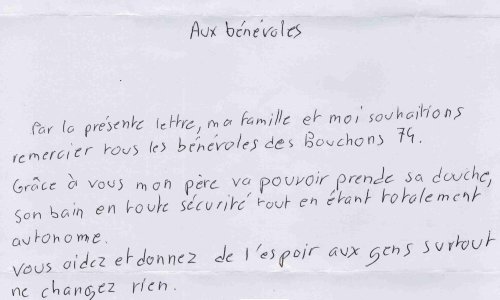 Aux bénévoles
Par la présente lettre, ma famille et moi souhaitions
remercier tous les bénévoles des Bouchons 74.
Grâce à vous mon père va pouvoir prende sa douche,
son bain en toute sécurité tout en étant totalement
autonome.
Vous aidez et donnez de l'espoir aux gens surtout
ne changez rien.